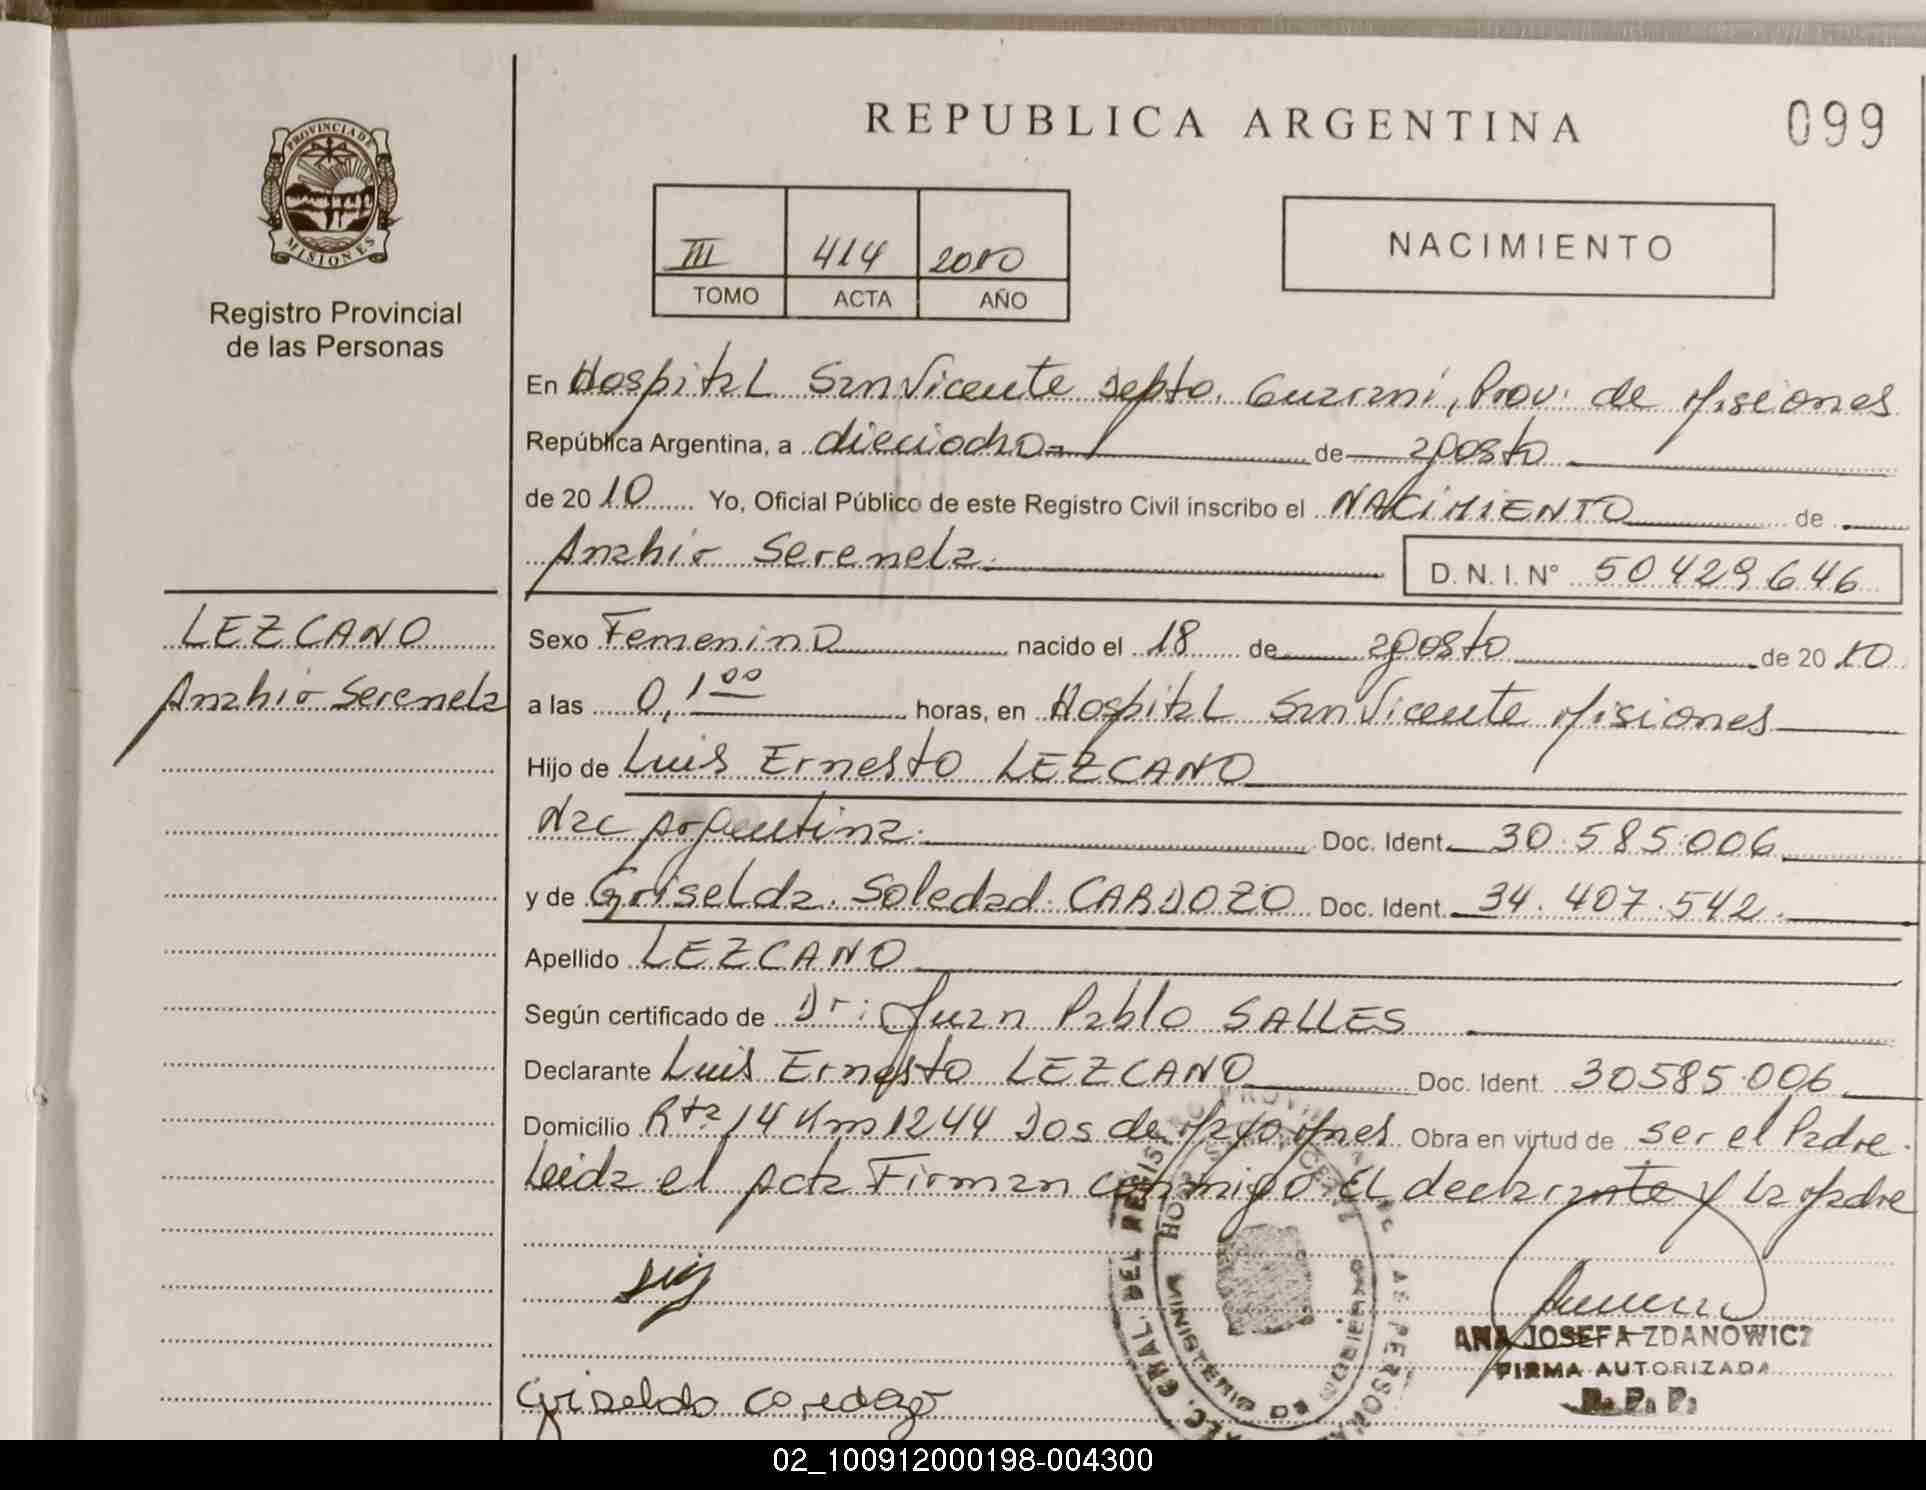 REPUBLICA ARGENTINA
099
PROVINCIA DE
MISIONES
Registro Provincial
de las Personas
III 414 2010
TOMO ACTA AÑO
NACIMIENTO
En Hospital San Vicente Depto. Guarani, Prov. de Misiones
República Argentina, a dieciocho de agosto
de 2010 Yo, Oficial Público de este Registro Civil inscribo el NACIMIENTO de
Anahir Serenela
D.N.I. N° 50429646
LEZCANO
Anahir Serenela
Sexo Femenino nacido el 18 de agosto de 2010
a las 0,1⁰⁰ horas, en Hospital San Vicente Misiones
Hijo de Luis Ernesto LEZCANO
Nac Argentina. Doc. Ident. 30.585.006
y de Griselda Soledad CARDOZO Doc. Ident. 34.407.542
Apellido LEZCANO
Según certificado de Dr: Juan Pablo SALLES
Declarante Luis Ernesto LEZCANO Doc. Ident. 30585.006
Domicilio Rta 14 Km 1244 Dos de Mayo, Mnes Obra en virtud de ser el Padre.
Leida el Acta Firman conmigo El declarante y La Madre
ANA JOSEFA ZDANOWICZ
FIRMA AUTORIZADA
R. P. P.
MINISTERIO DE GOBIERNO
02_100912000198-004300